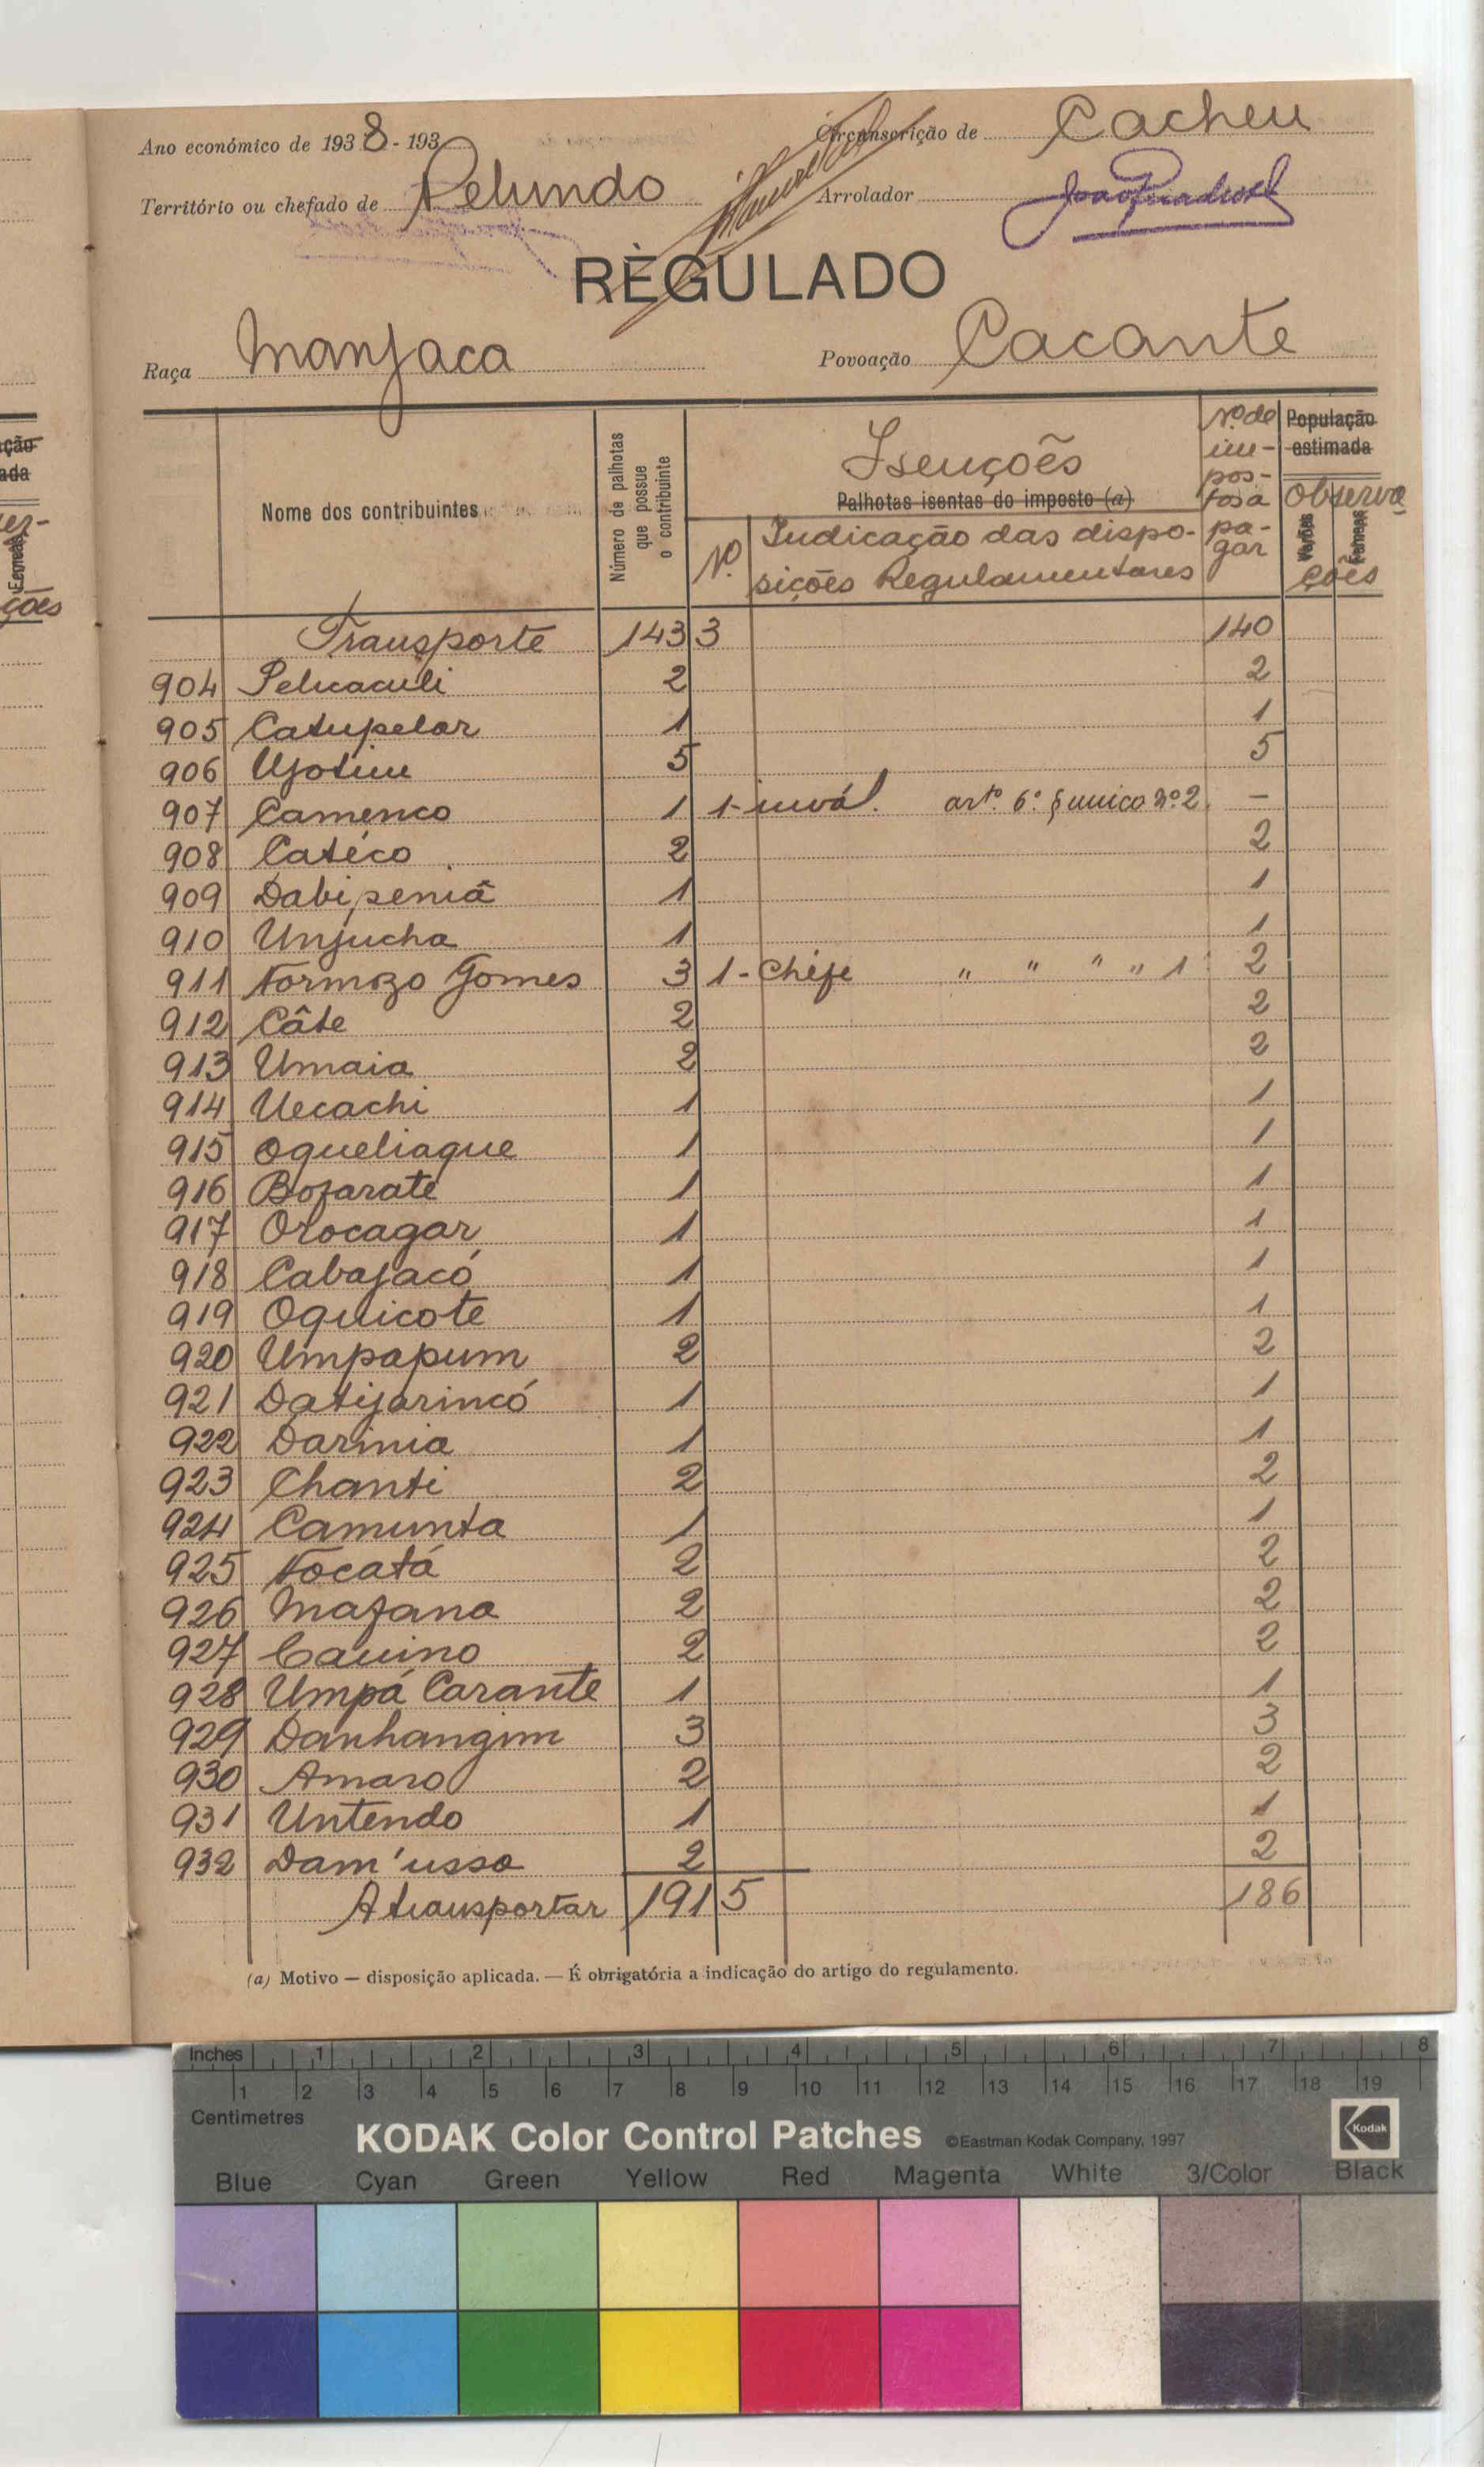 Ano económico de 1938-193
Circunscrição de Cacheu
Território ou chefado de Pelundo
Arrolador
REGULADO
Raça Manjaca
Povoação Cacante
Nome dos contribuintes
Número de palhotas que possue o contribuinte
Isenções
Palhotas isentas do imposto (a)
Nº
Indicação das dispo-
sições Regulamentares
Nº de
im-
pos-
tos a
pa-
gar
População
estimada
Observa
Varões
Femeas
ções
Transporte 143 3 140
904 Pelicaculi 2 2
905 Catupelar 1 1
906 Ujotim 5 5
907 Camenco 1 1-invál. artº. 6º. § unico nº 2 -
908 Catéco 2 2
909 Dabipeniã 1 1
910 Unjucha 1 1
911 Normozo Gomes 3 1-Chefe " " " " 1 2
912 Câte 2 2
913 Umaia 2 2
914 Uecachi 1 1
915 Oqueliaque 1 1
916 Bojarate 1 1
917 Orocagar 1 1
918 Cabajacó 1 1
919 Oquicote 1 1
920 Umpapum 2 2
921 Datijarincó 1 1
922 Darinia 1 1
923 Chanti 2 2
924 Camunta 1 1
925 Nocatá 2 2
926 Majana 2 2
927 Cauino 2 2
928 Umpá Carante 1 1
929 Danhangim 3 3
930 Amaro 2 2
931 Untendo 1 1
932 Dam'usso 2 2
A transportar 191 5 186
(a) Motivo — disposição aplicada. — É obrigatória a indicação do artigo do regulamento.
Inches 1 2 3 4 5 6 7 8
1 2 3 4 5 6 7 8 9 10 11 12 13 14 15 16 17 18 19
Centimetres
KODAK Color Control Patches ©Eastman Kodak Company, 1997 Kodak
Blue Cyan Green Yellow Red Magenta White 3/Color Black